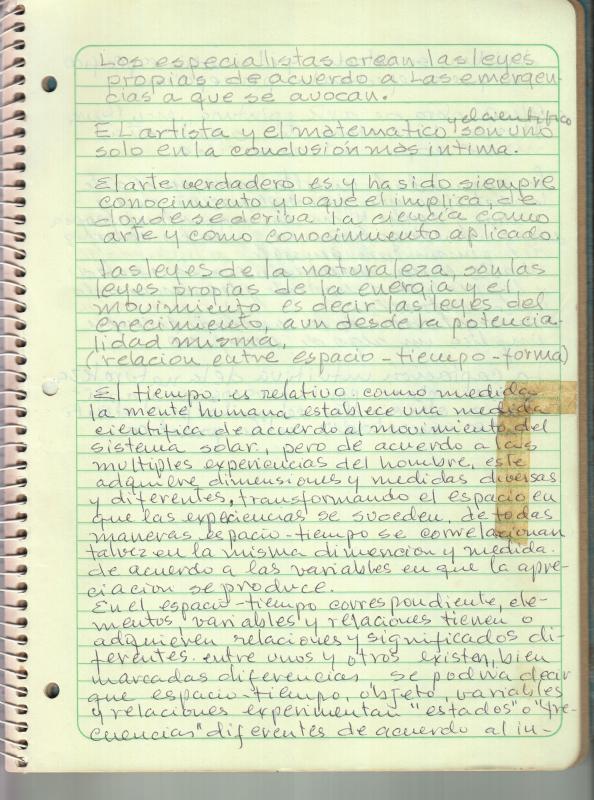 Los especialistas crean las leyes
propias de acuerdo a las emergen-
cias a que se avocan.
El artista y el matematico y el cientifico son uno
solo en la conclusión más intima.
El arte verdadero es y ha sido siempre
conocimiento y lo que el implica, de
donde se deriva la ciencia como
arte y como conocimiento aplicado.
Las leyes de la naturaleza, son las
leyes propias de la energia y el
movimiento es decir las leyes del
crecimiento, aun desde la potencia-
lidad misma,
(relacion entre espacio-tiempo-forma)
El tiempo es relativo como medida
la mente humana establece una medida
cientifica de acuerdo al movimiento del
sistema solar, pero de acuerdo a las
multiples experiencias del hombre, este
adquiere dimensiones y medidas diversas
y diferentes, transformando el espacio en
que las experiencias se suceden, de todas
maneras espacio-tiempo se correlacionan
talvez en la misma dimencion y medida.
de acuerdo a las variables en que la apre-
ciacion se produce.
En el espacio-tiempo correspondiente, ele-
mentos variables y relaciones tienen o
adquieren relaciones y significados di-
ferentes. entre unos y otros existen, bien
marcadas diferencias se podria decir
que espacio-tiempo, objeto, variables
y relaciones experimentan "estados" o "fre-
cuencias" diferentes de acuerdo al in-